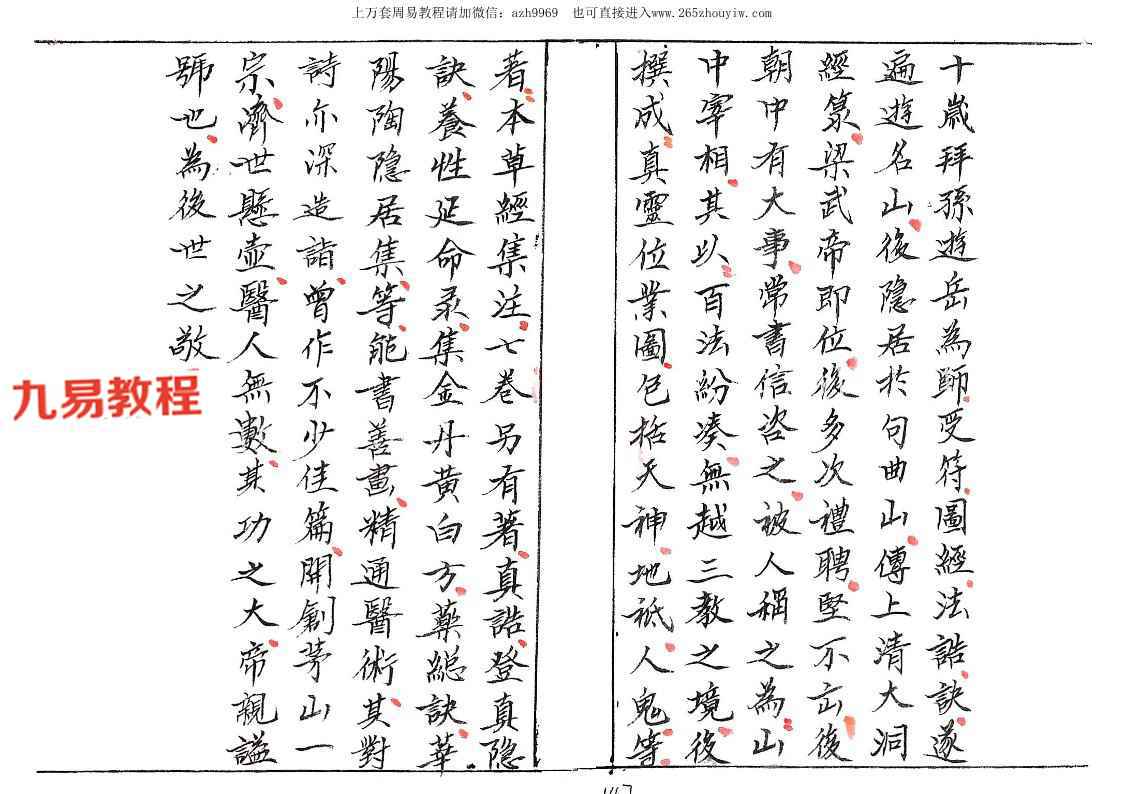 上万套周易教程请加微信：azh9969　也可直接进入www.265zhouyiw.com
十歲拜孫遊岳為師受符圖經法誥訣遂
遍遊名山後隱居於句曲山傳上清大洞
經籙梁武帝即位後多次禮聘堅不出後
朝中有大事常書信咨之被人稱之為山
中宰相其以百法紛湊無越三教之境後
撰成真靈位業圖包括天神地祇人鬼等
著本草經集注七卷另有著真誥登真隱
訣養性延命录集金丹黄白方藥總訣華
陽陶隱居集等能書善畫精通醫術其對
詩亦深造詣曾作不少佳篇開創茅山一
宗濟世懸壺醫人無數其功之大帝親謚
號也為後世之敬
九易教程